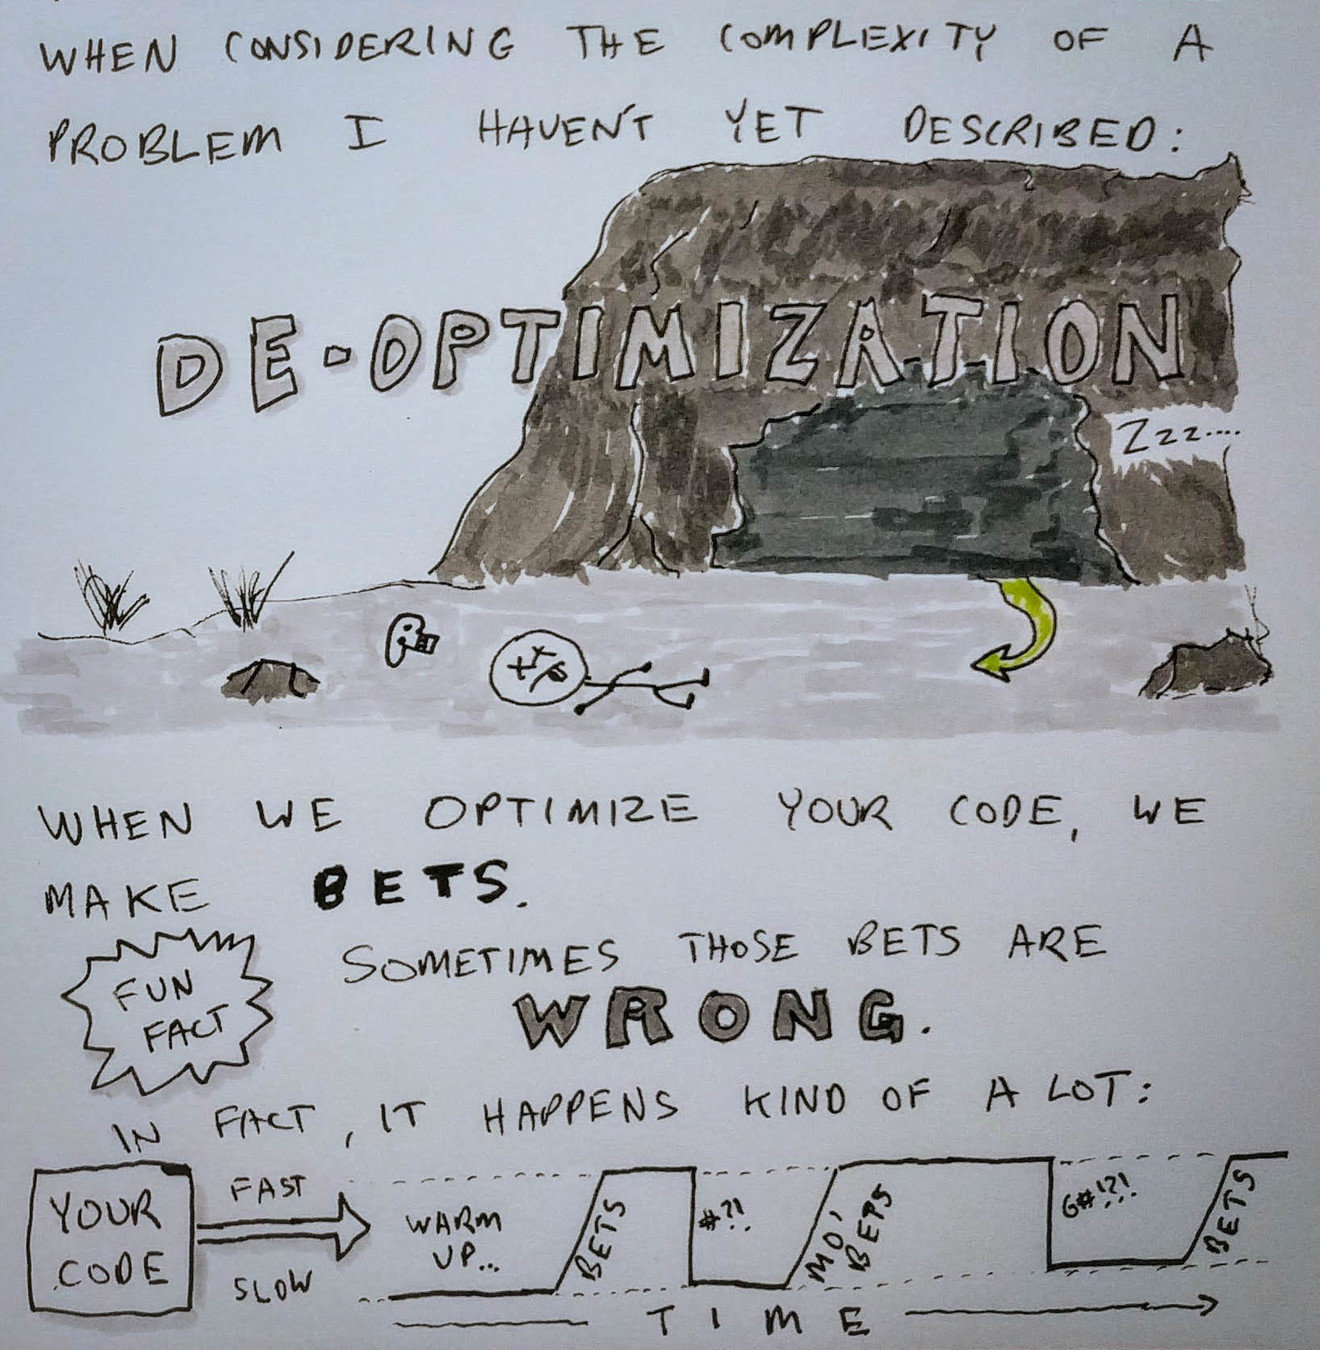 WHEN CONSIDERING THE COMPLEXITY OF A
PROBLEM I HAVEN'T YET DESCRIBED:
DE-OPTIMIZATION
Zzz....
WHEN WE OPTIMIZE YOUR CODE, WE
MAKE BETS.
FUN
FACT
SOMETIMES THOSE BETS ARE
WRONG.
IN FACT, IT HAPPENS KIND OF A LOT:
YOUR
CODE
FAST
SLOW
WARM
UP...
BETS
#?!
MO'
BETS
G#!?!
BETS
TIME